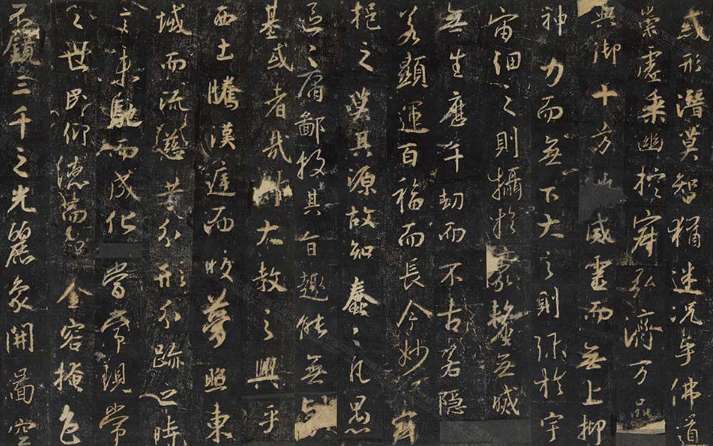 或形潛莫智猶迷況乎佛道
崇虛乘幽控寂弘濟万品
典御十方威靈而無上抑
神力而無下大之則弥於宇
宙細之則攝於豪氂無滅
無生歷千劫而不古若隱
若顯運百福而長今妙寂
挹之莫其源故知蠢〻凡愚
區〻庸鄙投其旨趣能無疑
基或者哉則大教之興乎
西土騰漢庭而皎夢照東
域而流慈昔分形分跡之時
言未馳而成化當常現常
之世民仰德而知金容掩色
不鏡三千之光麗象開圖空